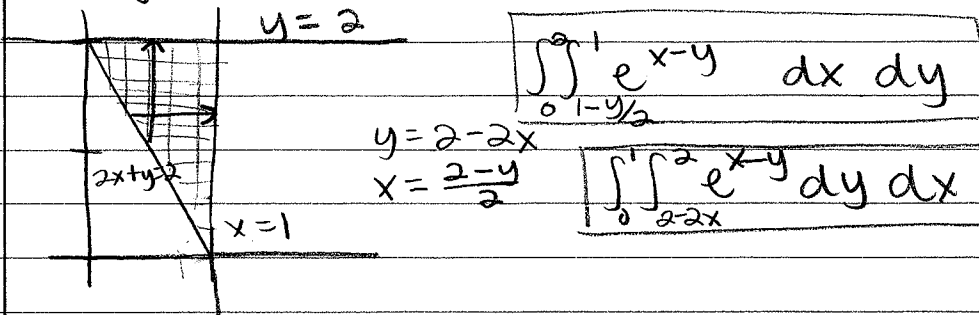 y = 2
∫₀² ∫₁₋y/₂¹ e^(x-y) dx dy
y = 2-2x
x = (2-y)/2
∫₀¹ ∫₂₋₂ₓ² e^(x-y) dy dx
2x+y=2
x=1